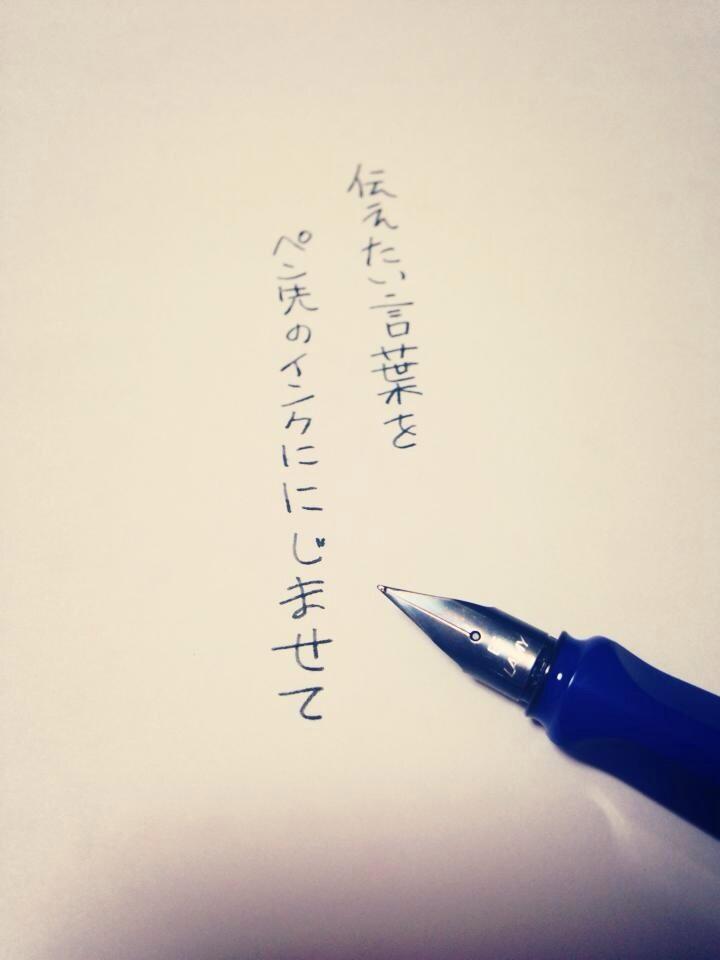 伝えたい言葉を
ペン先のインクににじませて
LAMY